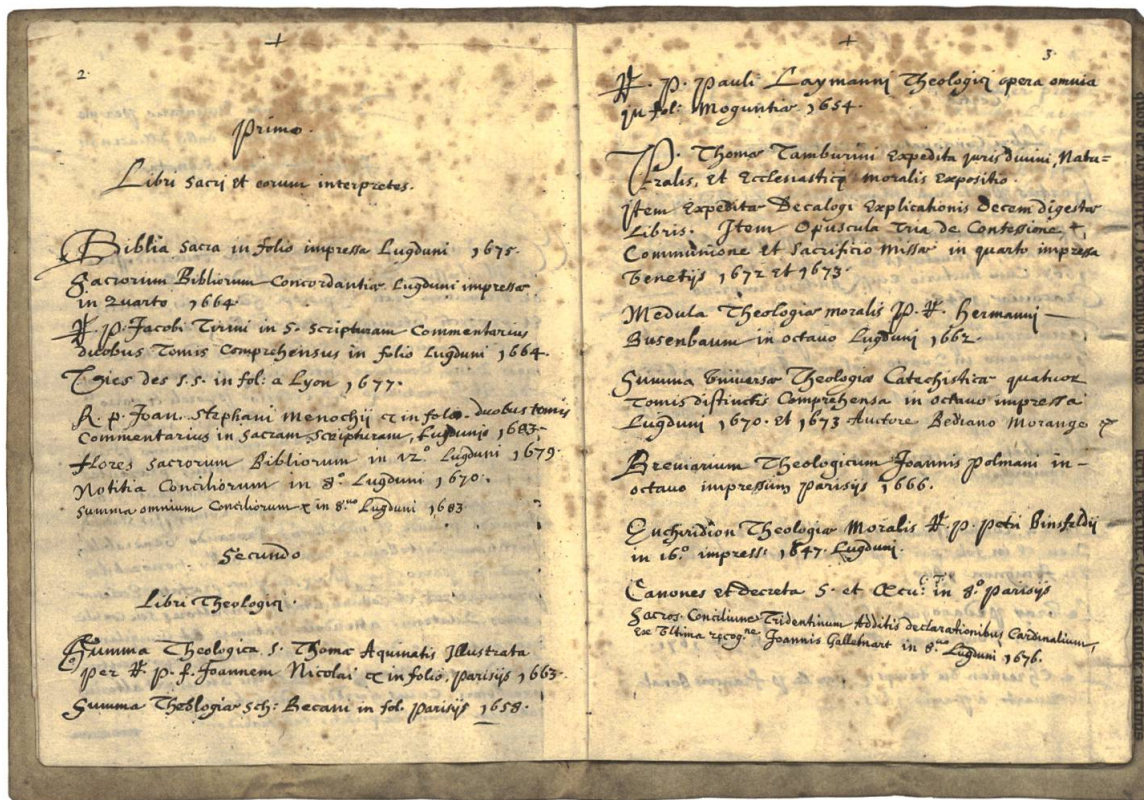 2.
Primo.
Libri Sacri et eorum interpretes.
Biblia Sacra in folio impressa Lugduni 1675.
Sacrorum Bibliorum Concordantiæ Lugduni impressæ
in Quarto 1664.
R. P. Jacobi Tirini in S. Scripturam Commentarius
duobus Tomis Comprehensus in folio Lugduni 1664.
Vies des S.S. in fol: a Lyon 1677.
R. P. Joan. Stephani Menochii & in folo. duobus tomis
Commentarius in Sacram Scripturam, Lugduni 1683.
flores Sacrorum Bibliorum in 12.° Lugduni 1679.
Notitia Conciliorum in 8.° Lugduni 1670.
Summa omnium Conciliorum & in 8.uo Lugduni 1683
Secundo
Libri Theologici.
Summa Theologica S. Thomæ Aquinatis Illustrata
per R. P. f. Joannem Nicolai & in folio, parisijs 1663.
Summa Theologiæ Sch: Becani in fol. parisijs 1658.
3.
R. P. Pauli Laymanni Theologici opera omnia
in fol: Moguntiæ 1654.
P. Thomæ Tamburini Expedita juris divini, Natu=
ralis, et Ecclesiastici moralis Expositio.
Item Expedita Decalogi Explicationis decem digesta
Libris. Item Opuscula tria de Confessione,
Communione et Sacrificio Missæ in quarto impressa
Venetijs 1672 et 1673.
Medula Theologiæ moralis P. R. Hermanni —
Busenbaum in octavo Lugduni 1662.
Summa Universæ Theologiæ Catechisticæ quatuor
Tomis distinctis Comprehensa in octavo impressa
Lugduni 1670. et 1673 Auctore Bediano Morange
Breviarium Theologicum Joannis Polmani in —
octavo impressum parisijs 1666.
Enchiridion Theologiæ Moralis R. P. Petri Binsfeldij
in 16.° impress: 1647. Lugduni.
Canones et decreta S. et Œcu: C. T. in 8.° parisijs
Sacros. Concilium Tridentinum Additis declarationibus Cardinalium,
Ex Ultima recog.ne Joannis Gallemart in 8.uo Lugduni 1676.